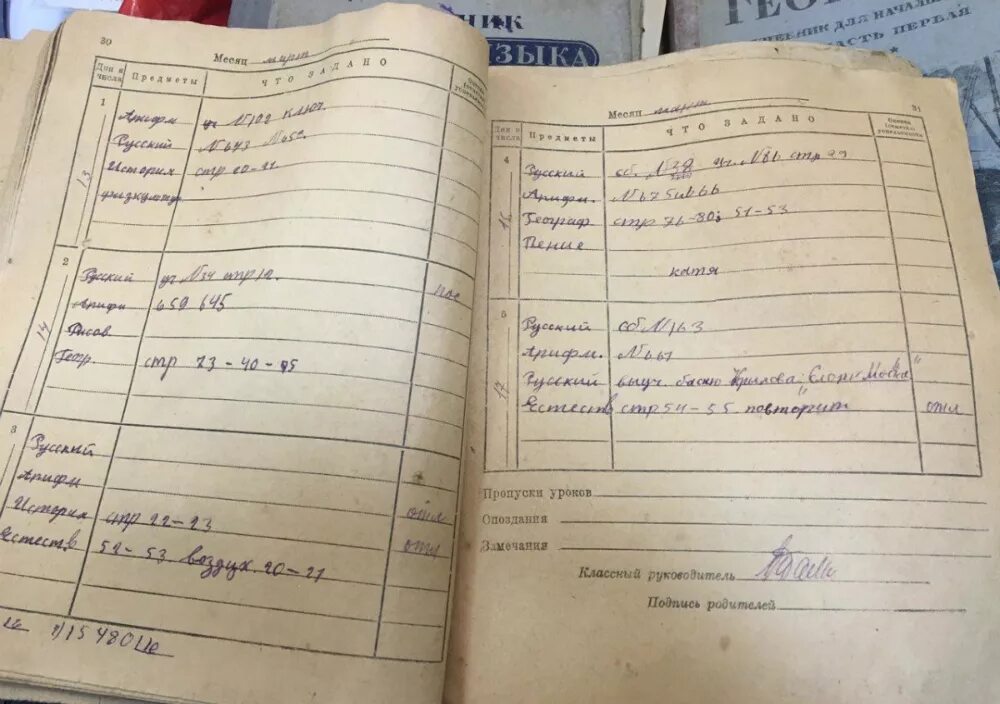 НИК
ЗЫКА
ГЕО
ЕБНИК ДЛЯ НАЧАЛЬ
АСТЬ ПЕРВАЯ
30
Месяц март
Дни и числа
Предметы
ЧТО ЗАДАНО
1
13
Арифм уч №102 ключ
Русский №643 №652
История стр 20-21
физкульт
2
14
Русский уч №34 стр 12. пос
Арифм 659 645
Рисов
Геогр. стр 73-40-45
3
Русский
Арифм
История стр 22-23 отл
Естеств. 52-53 воздух 20-21 отл
31
Месяц март
Дни и числа
Предметы
ЧТО ЗАДАНО
Оценка успеваемости
4
16
Русский сб. №39 уч. №86 стр 29
Арифм. №675 и 666
Географ. стр 76-80; 51-53
Пение
катя
5
17
Русский сб №163
Арифм. №661
Русский выуч. басню Крылова "Слон и Моська"
Естеств стр 54-55 повторит отл
Пропуски уроков
Опоздания
Замечания
Классный руководитель
Подпись родителей